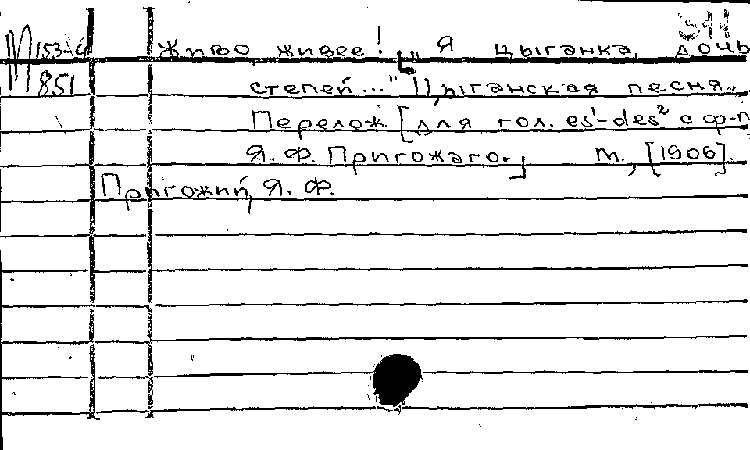 М 153-6
851
Живо живее! [„Я цыганка, дочь
степей..." Цыганская песня.
Перелож. [для гол. es¹-des² с ф-п
Я. Ф. Пригожаго.] М., [1906].
Пригожий, Я. Ф.